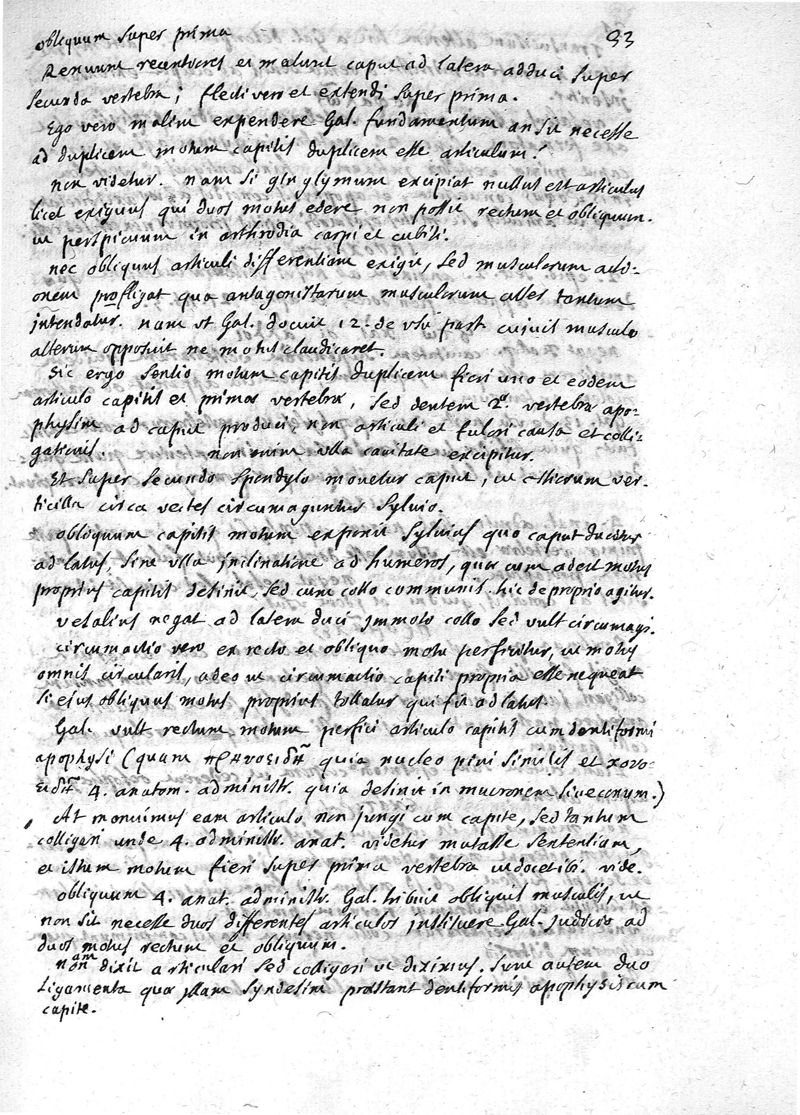 33
obliquum super prima
Renuunt recentiores et malunt caput ad latera adduci super
secunda vertebra; flecti vero et extendi super prima.
Ego vero malim expendere Gal. fundamentum an sit necesse
ad duplicem motum capitis duplicem esse articulum?
non videtur. nam si ginglymum excipiat nullus est articulus
licet exiguus qui duos motus edere non possit rectum et obliquum.
ut perspicuum in arthrodia carpi et cubiti.
nec obliquus articuli differentiam exigit, sed musculorum acti-
onem profligat qua antagonistarum musculorum alter tantum
intendatur. nam ut Gal. docuit 12. de usu part. cuivis musculo
alterum opposuit ne motus claudicaret.
Sic ergo sentio motum capitis duplicem fieri uno et eodem
articulo capitis et primae vertebrae, sed dentem 2ae. vertebrae apo-
physim ad caput produci, non articuli et fulcri causa et colli-
gationis. non enim ulla cavitate excipitur.
Et super secundo spondylo movetur caput, ut verum ver-
ticilla circa vectes circumaguntur Sylvio.
obliquum capitis motum exponit Sylvius quo caput ducitur
ad latus, sine ulla inclinatione ad humeros, quae cum adest motus
proprius capitis desinit, sed cum collo communis. hic de proprio agitur.
vesalius negat ad latera duci immoto collo sed vult circumagi.
circumactio vero ex recto et obliquo motu perficitur, ut motus
omnis circularis, adeo ut circumactio capiti propria esse nequeat
si ejus obliquus motus proprius tollatur qui fit ad latus.
Gal. vult rectum motum perfici articulo capitis cum dentiformi
apophysi (quam πυρηνοειδῆ quia nucleo pini similis et κονο-
ειδῆ 4. anatom. administr. quia desinit in mucronem sive conum.)
At monuimus eam articulo non jungi cum capite, sed tantum
colligari unde 4. administr. anat. videtur mutasse sententiam,
et istum motum fieri super prima vertebra vide.
obliquum 4. anat. administr. Gal. tribuit obliquis musculis, ut
non sit necesse duos differentes articulos instituere Gal. judicio ad
duos motus rectum et obliquum.
nam non dixit articulari sed colligari ut diximus. sunt autem duo
ligamenta quae illam syndesim praestant dentiformis apophysis cum
capite.